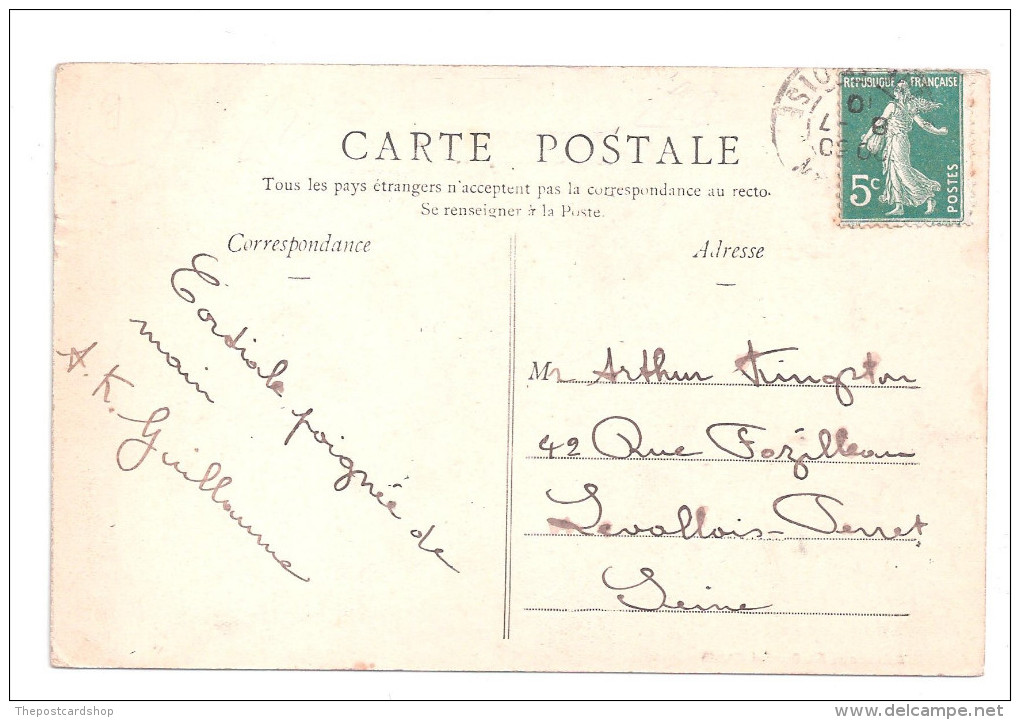 CARTE POSTALE
Tous les pays étrangers n'acceptent pas la correspondance au recto.
Se renseigner à la Poste.
RÉPUBLIQUE FRANÇAISE
5c
POSTES
Correspondance
Adresse
Cordiale poignée de
main
A. K. Guillaume
Mr Arthur Kingston
42 Rue Fozilleau
Levallois-Perret
Seine
Thepostcardshop
delcampe.net